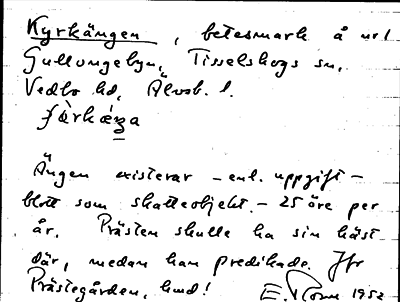 Kyrkängen, betesmark å nr 1
Gullungebyn, Tisselskogs sn,
Vedbo hd, Älvsb. l.
Ängen existerar – enl. uppgift –
blott som skatteobjekt. – 25 öre per
år. Prästen skulle ha sin häst
där, medan han predikade. Jfr
Prästegården, hmd!
1952